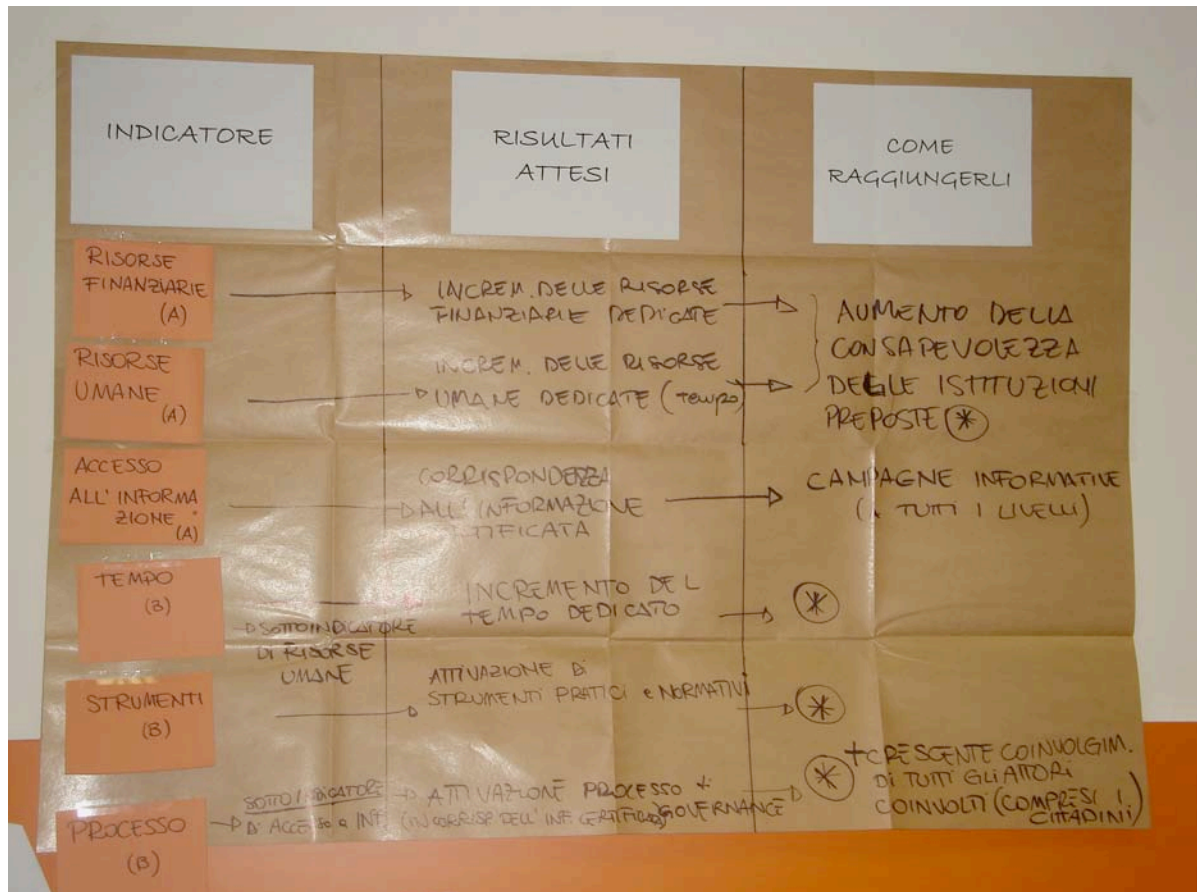 INDICATORE
RISULTATI
ATTESI
COME
RAGGIUNGERLI
RISORSE
FINANZIARIE
(A)
INCREM. DELLE RISORSE
FINANZIARIE DEDICATE
AUMENTO DELLA
CONSAPEVOLEZZA
DEGLE ISTITUZIONI
PREPOSTE (*)
RISORSE
UMANE
(A)
INCREM. DELLE RISORSE
UMANE DEDICATE (tempo)
ACCESSO
ALL'INFORMA
ZIONE
(A)
CORRISPONDENZA
ALL'INFORMAZIONE
CAMPAGNE INFORMATIVE
TUTTI I LIVELLI)
TEMPO
(B)
SOTTOINDICATORE
DI RISORSE
UMANE
INCREMENTO DEL
TEMPO DEDICATO
(*)
STRUMENTI
(B)
ATTIVAZIONE DI
STRUMENTI PRATICI e NORMATIVI
(*)
PROCESSO
(B)
SOTTOINDICATORE
DI ACCESSO a INF.
ATTIVAZIONE PROCESSO di
(IN CORRISP DELL'INF CERTIFICATA) GOVERNANCE
(*)
+ CRESCENTE COINVOLGIM.
DI TUTTI GLI ATTORI
COINVOLTI (COMPRESI I
CITTADINI)